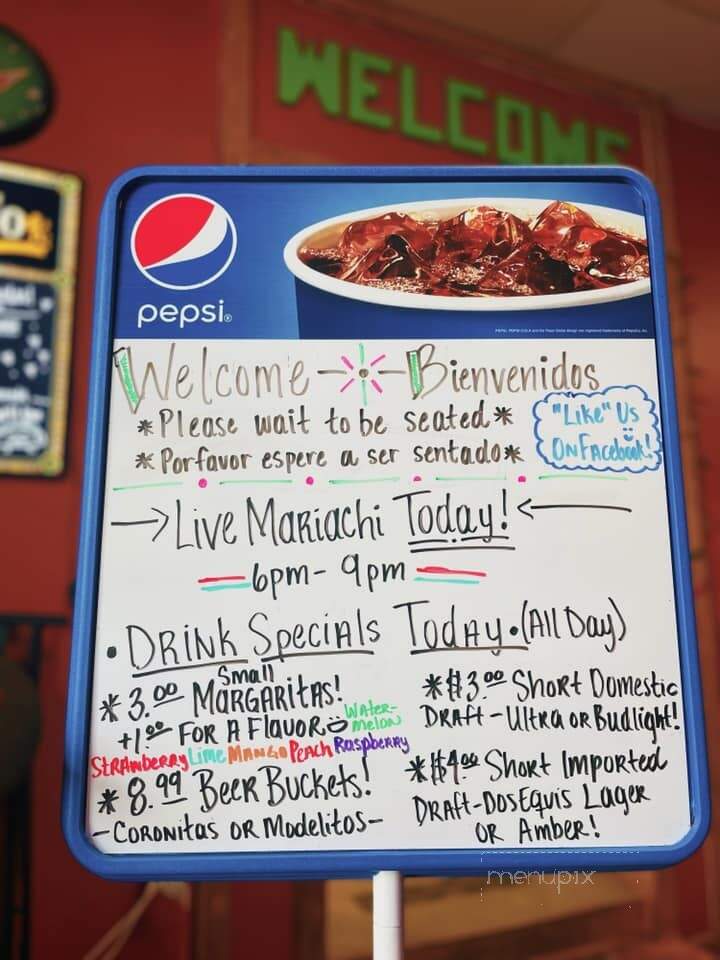 WELCOME
pepsi®
Welcome - Bienvenidos
*Please wait to be seated*
*Porfavor espere a ser sentado*
"Like" Us
On Facebook!
Live Mariachi Today!
6pm - 9pm
• Drink Specials Today • (All Day)
* 3.00 Small Margaritas!
+1.00 For A Flavor
Watermelon
Strawberry Lime Mango Peach Raspberry
* 8.99 Beer Buckets!
- Coronitas or Modelitos -
* $3.00 Short Domestic
Draft - Ultra or Budlight!
* $4.00 Short Imported
Draft - DosEquis Lager
or Amber!
menupix